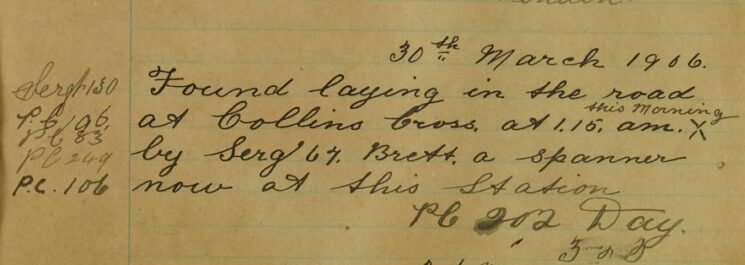 London
30th March 1906.
Sergt 130
Found laying in the road
this Morning
P.C 196.
at Collins Cross. at 1.15. am. X
PC 83.
PC 249
by Sergt 67. Brett. a spanner
P.C. 106
now at this Station
PC 202 Day.